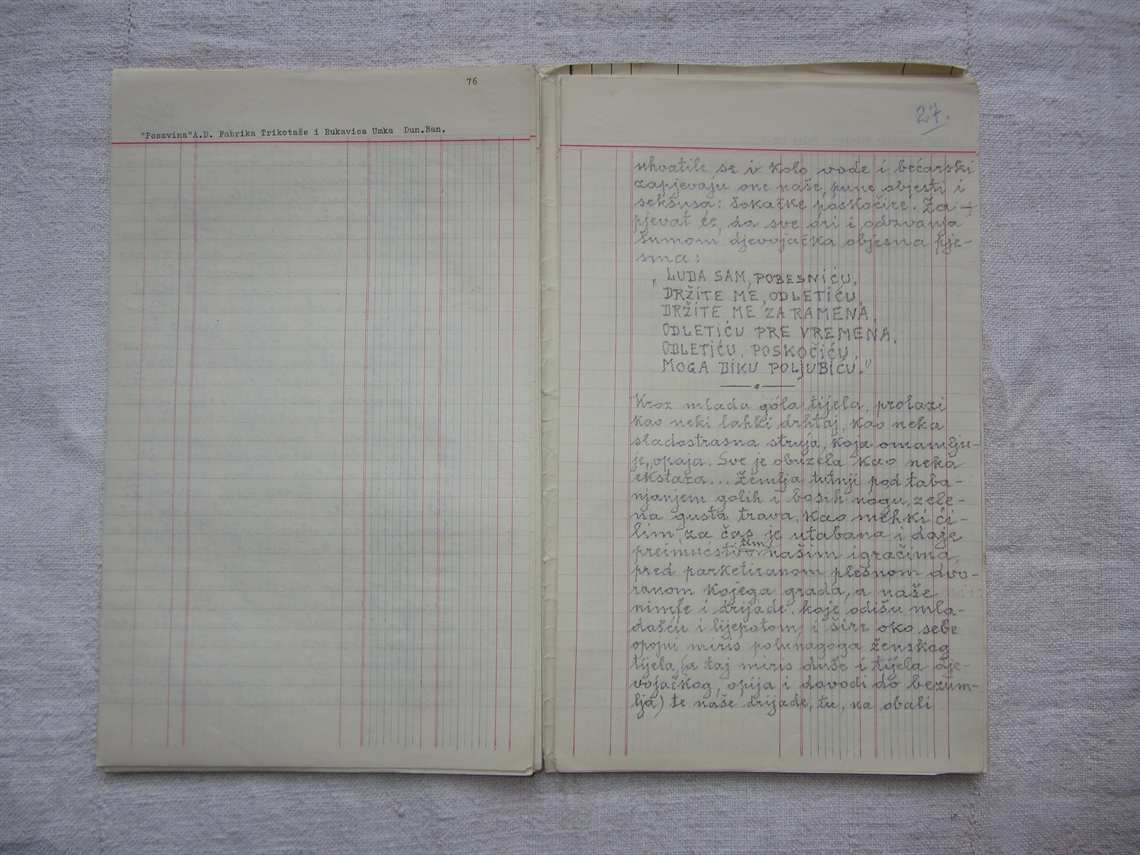 76
"Posavina"A.D. Fabrika Trikotaže i Rukavica Umka Dun.Ban.
27.
uhvatile se u kolo vode i bećarski
zapjevaju one naše, pune objesti i
seksusa: šokačke poskočice. Za-
pjevat će, da sve ori i odzvanja
šumom djevojačka objesna pje-
sma:
„LUDA SAM, POBESNIĆU,
DRŽITE ME, ODLETIĆU,
DRŽITE ME ZA RAMENA,
ODLETIĆU PRE VREMENA,
ODLETIĆU, POSKOČIĆU,
MOGA DIKU POLJUBIĆU."
Kroz mlada gola tijela, prolazi
kao neki lahki drhtaj, kao neka
sladostrasna struja, koja omamlju-
je, opaja. Sve je obuzela kao neka
ekstaza... Zemlja tutnji pod taba-
njanjem golih i bosih nogu, zele-
na gusta trava, kao mehki ći-
lim, za čas je utabana i daje
preimućstvo tim našim igračima,
pred parketiranom plesnom dvo-
ranom kojega grada, a naše
nimfe i drijade, koje odišu mla-
dašću i lijepotom, i šire oko sebe
opojni miris polunagoga ženskog
tijela, (a taj miris duše i tijela dje-
vojačkog, opija i dovodi do bezum-
lja) te naše drijade, tu, na obali